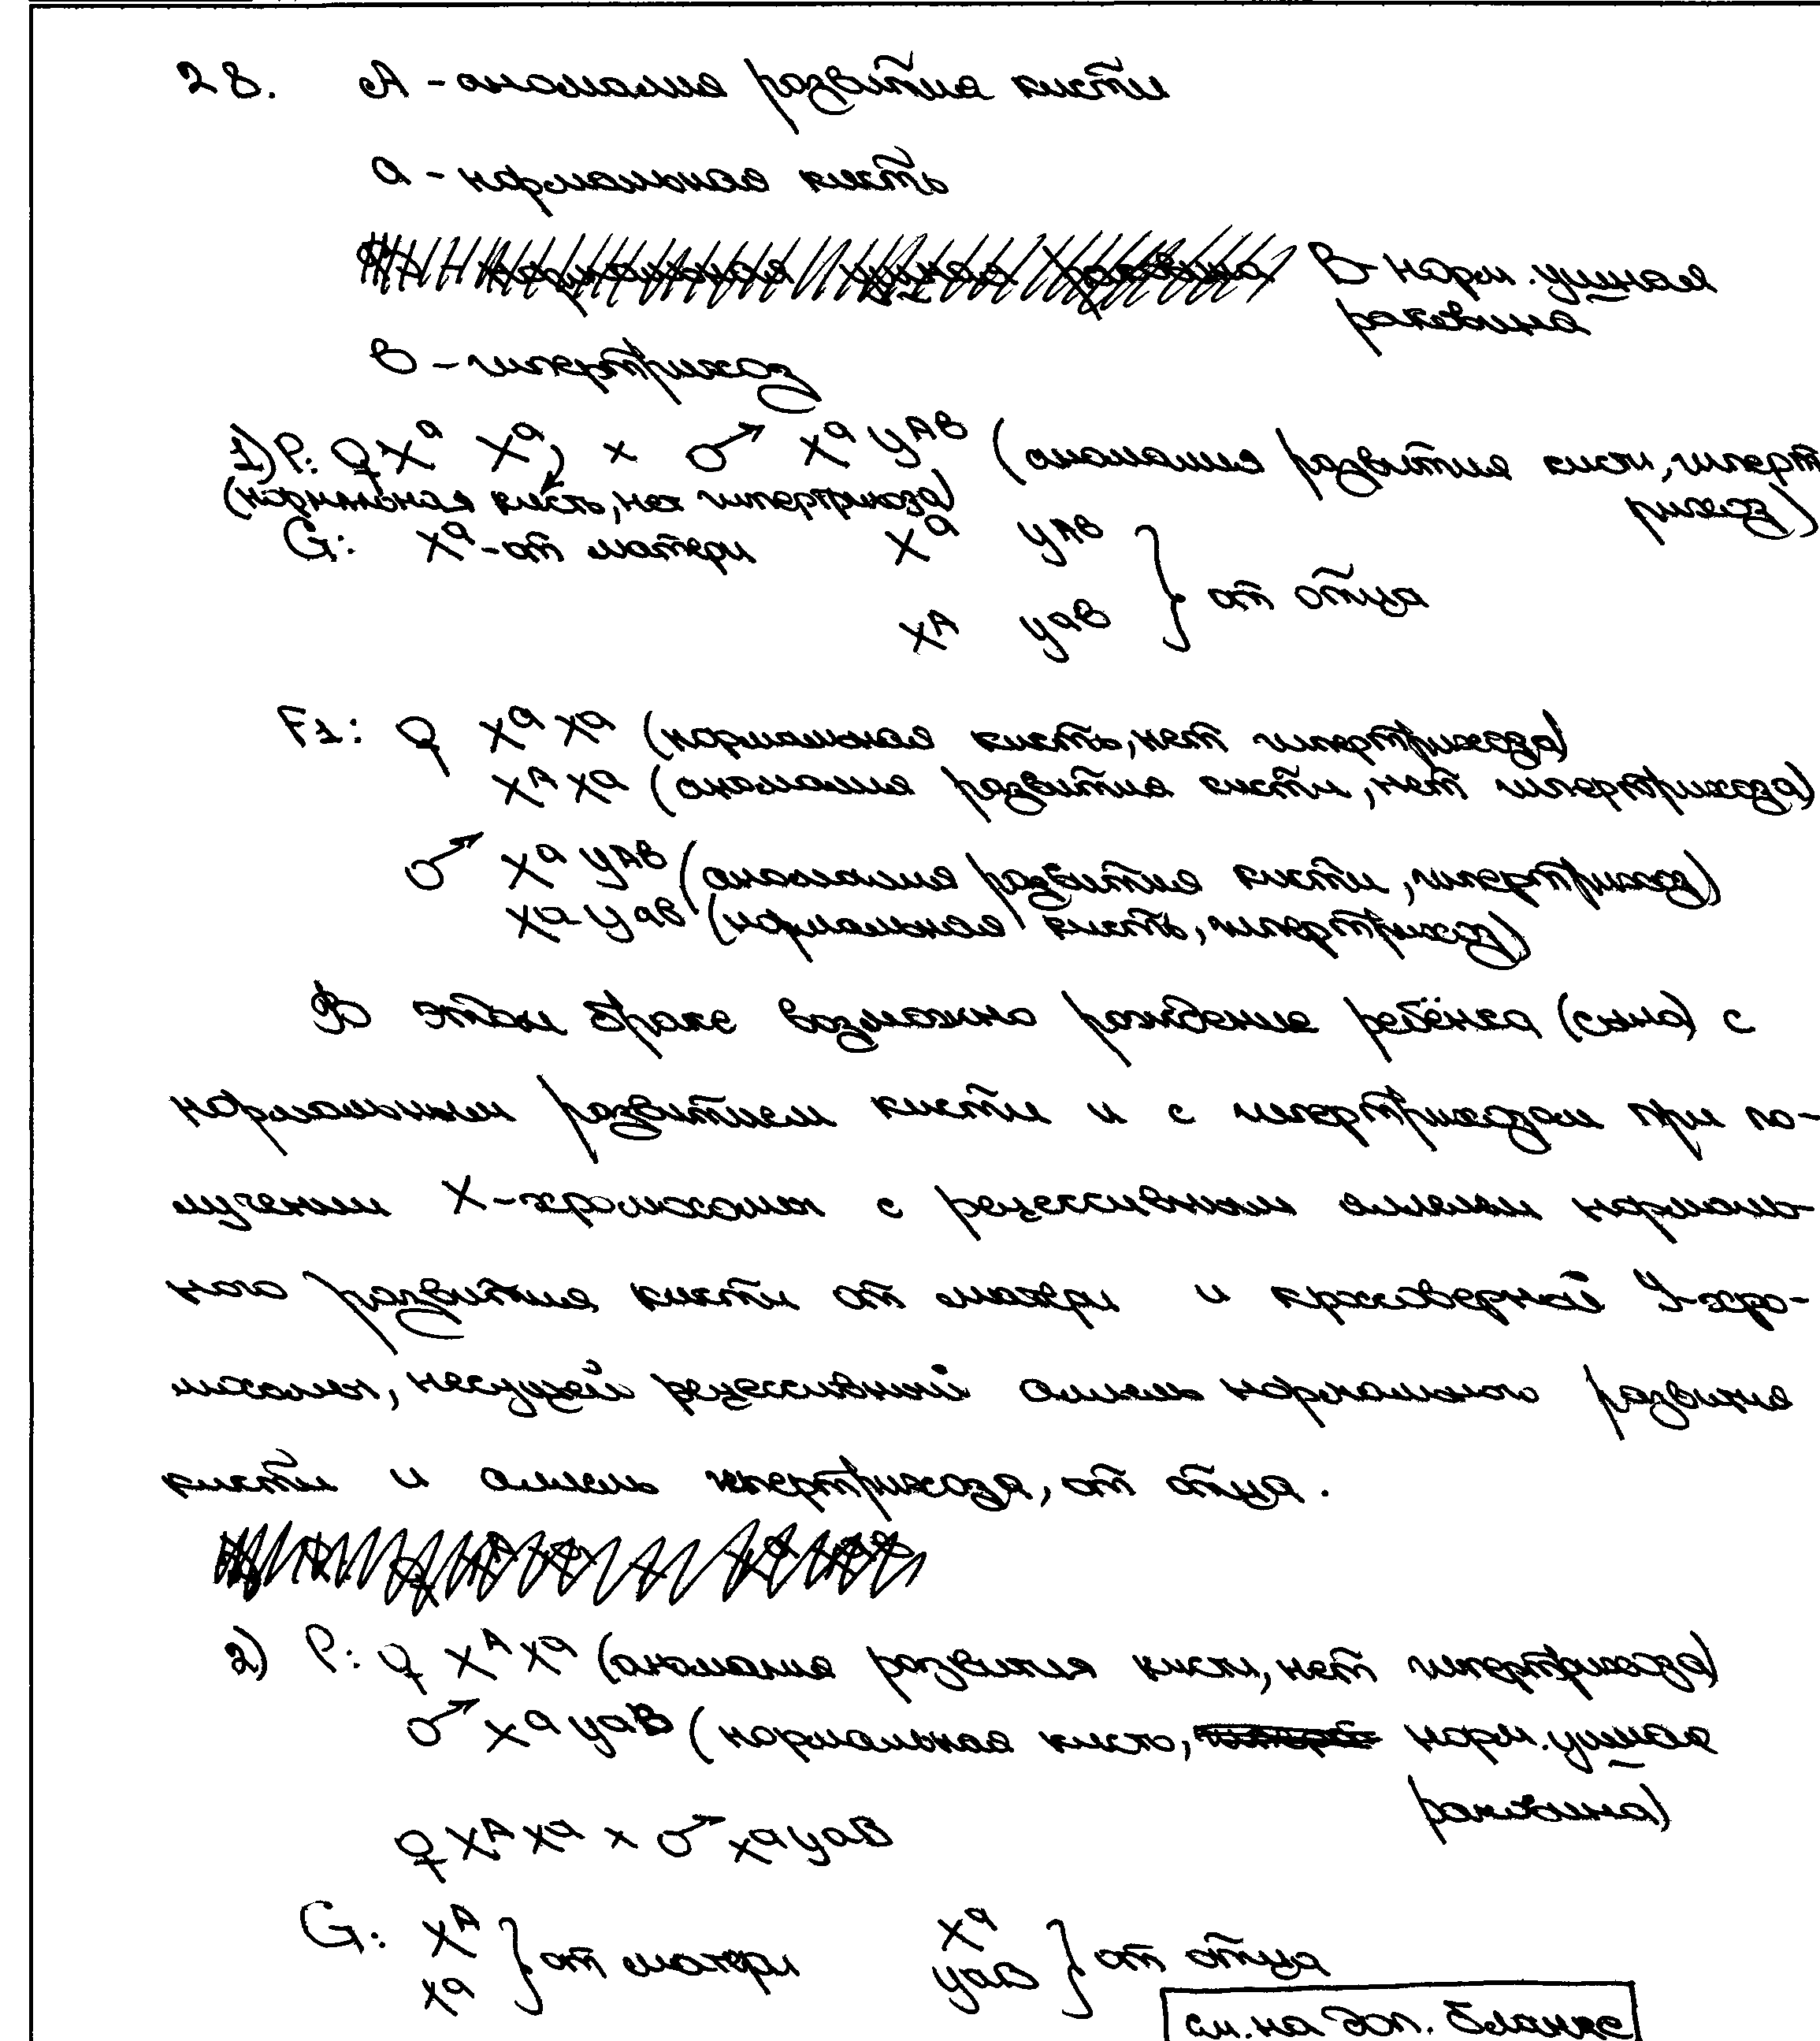 28. А - аномалия развития кисти
а - нормальная кисть
В - норм. ушная
раковина
в - гипертрихоз
1) Р: ♀ Xᵃ Xᵃ × ♂ Xᵃ Yᴬᵇ (аномалия развития кисти, гиперт
рихоз)
(нормальная кисть, нет гипертрихоза)
G: Xᵃ - от матери Xᵃ Yᴬᵇ } от отца
Xᴬ Yᵃᵇ
F1: ♀ XᵃXᵃ (нормальная кисть, нет гипертрихоза)
XᴬXᵃ (аномалия развития кисти, нет гипертрихоза)
♂ XᵃYᴬᵇ (аномалия развития кисти, гипертрихоз)
XᵃYᵃᵇ (нормальная кисть, гипертрихоз)
В этом браке возможно рождение ребёнка (сына) с
нормальным развитием кисти и с гипертрихозом при по-
лучении X-хромосомы с рецессивным аллелем нормаль-
ного развития кисти от матери и кроссоверной Y-хро-
мосомы, несущей рецессивный аллель нормального развития
кисти и аллель гипертрихоза, от отца.
2) Р: ♀ XᴬXᵃ (аномалия развития кисти, нет гипертрихоза)
♂ XᵃYᵃᴮ (нормальная кисть, норм. ушная
раковина)
♀ XᴬXᵃ × ♂ XᵃYᵃᴮ
G: Xᴬ } от матери Xᵃ } от отца
Xᵃ Yᵃᴮ
см. на доп. бланке